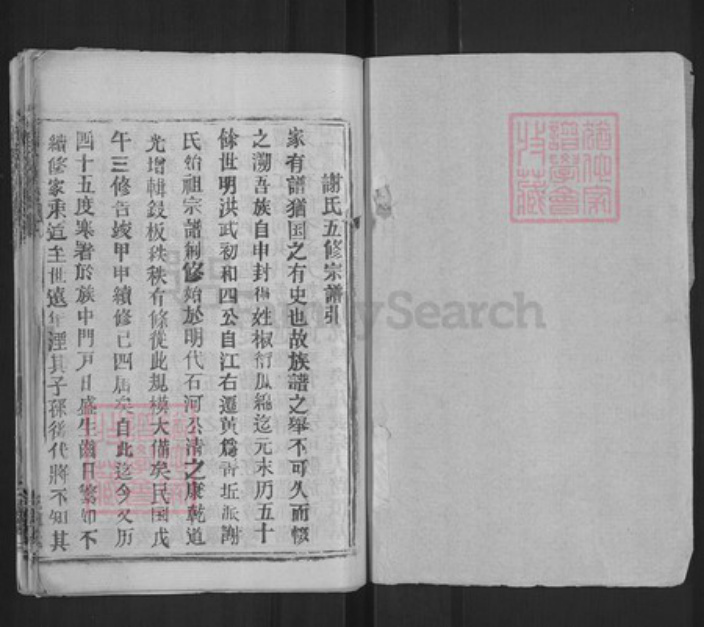 謝氏五修宗譜引
家有譜猶国之有史也故族譜之舉不可久而懷
之溯吾族自申封得姓椒衍瓜綿迄元末历五十
餘世明洪武初和四公自江右遷黃爲青坵派謝
氏始祖宗譜創修始於明代石河公清之康乾道
光增輯鋟板秩秩有條從此規模大備矣民国戊
午三修告竣甲申續修已四屆矣自此迄今又历
四十五度寒暑於族中門戸日盛生齒日繁如不
續修家乘迨至世遠年湮其子孫後代將不知其
FamilySearch